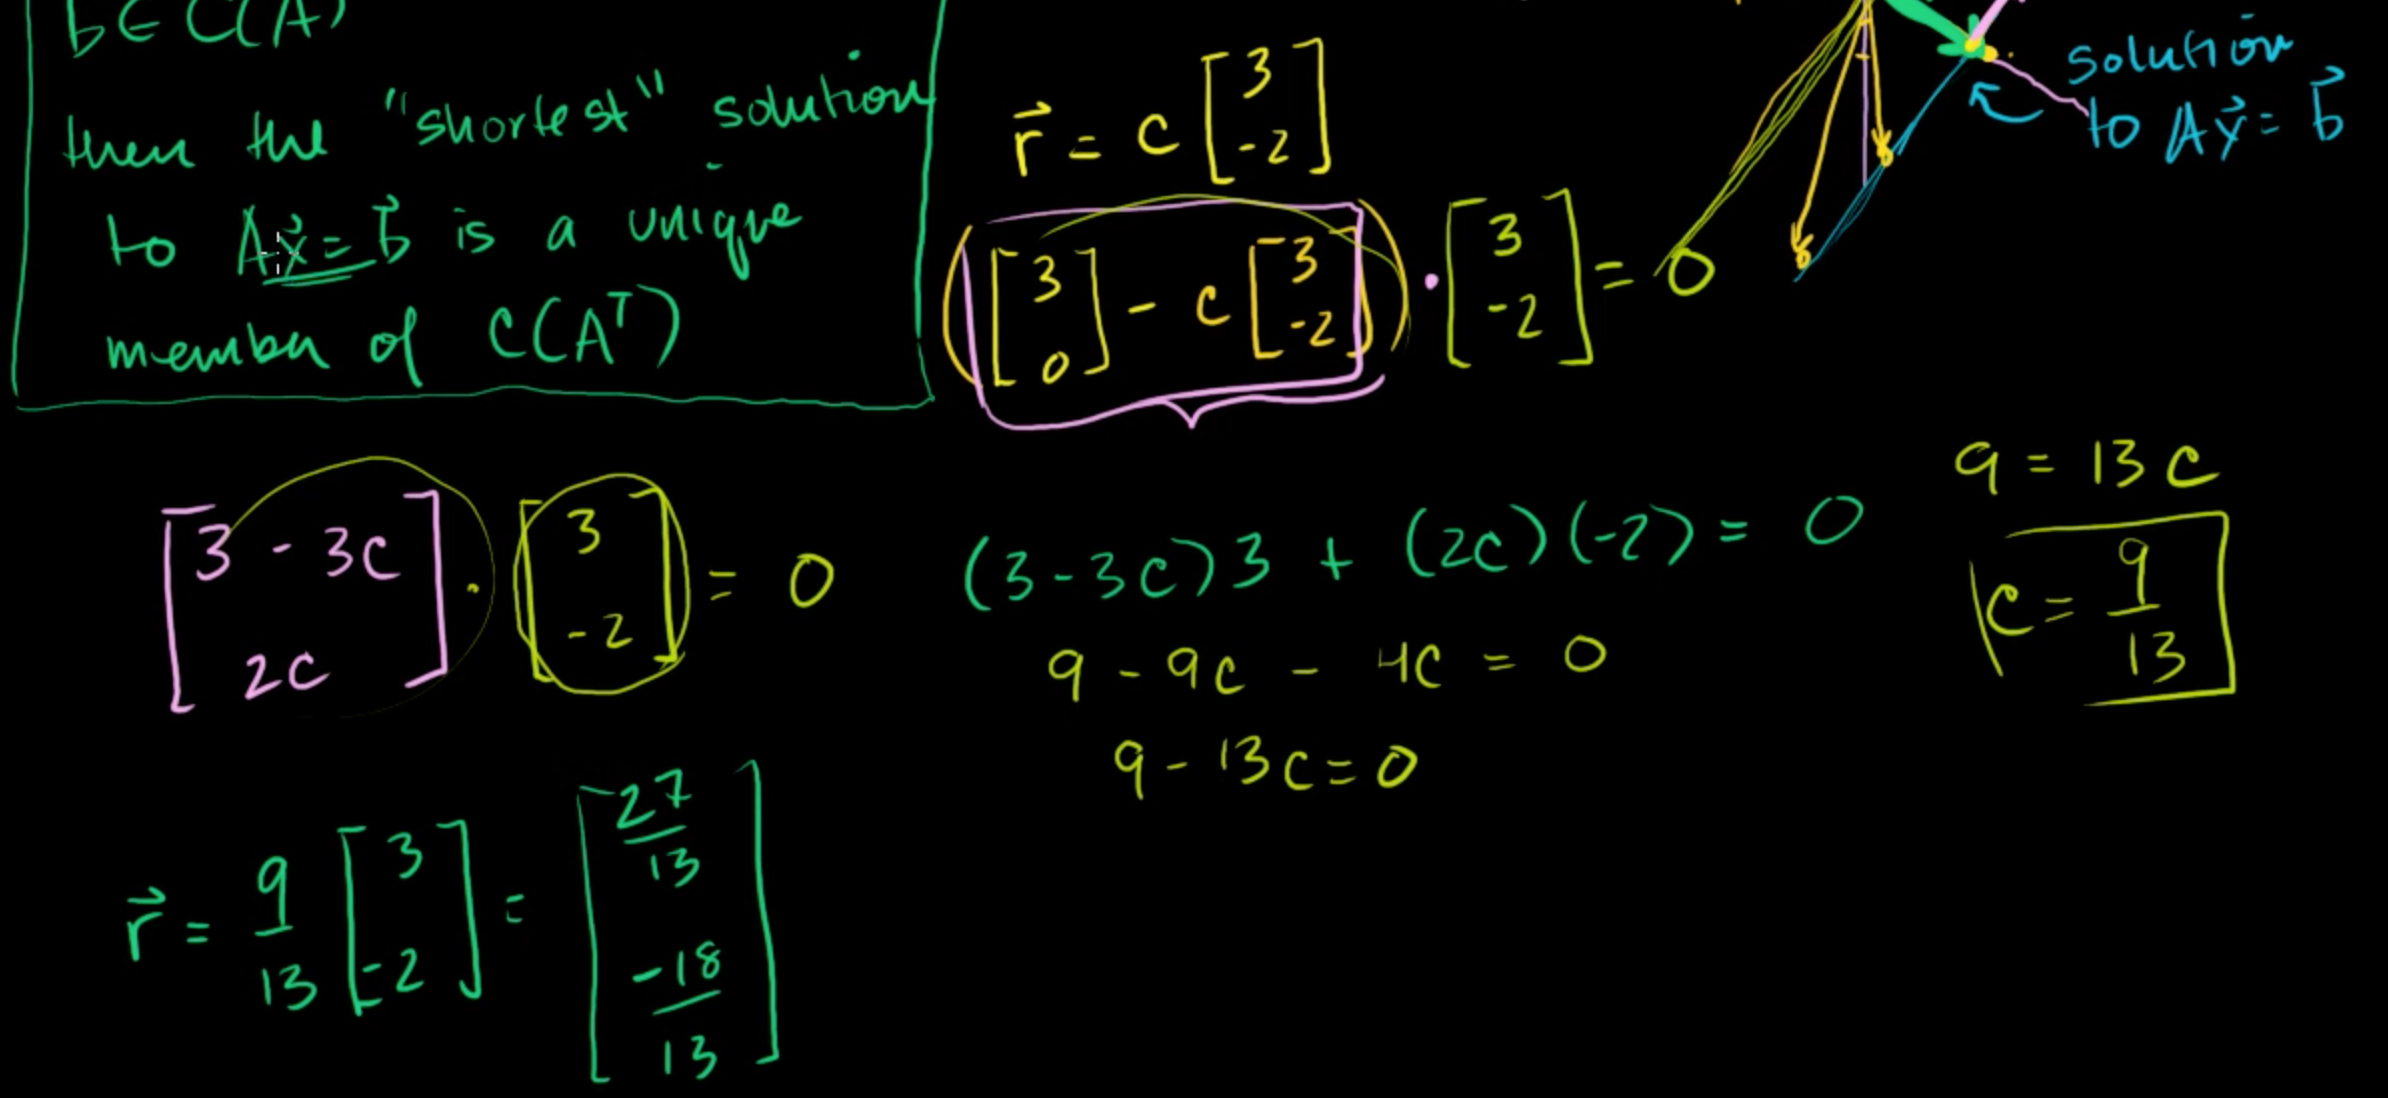 b ∈ C(A)
then the "shortest" solution
to Ax⃗ = b⃗ is a unique
member of C(Aᵀ)
r⃗ = c [3 -2]
([3 0] - c [3 -2]) · [3 -2] = 0
solution
to Ax⃗ = b⃗
[3 - 3c 2c] · [3 -2] = 0
(3 - 3c)3 + (2c)(-2) = 0
9 - 9c - 4c = 0
9 - 13c = 0
9 = 13c
c = 9/13
r⃗ = 9/13 [3 -2] = [27/13 -18/13]